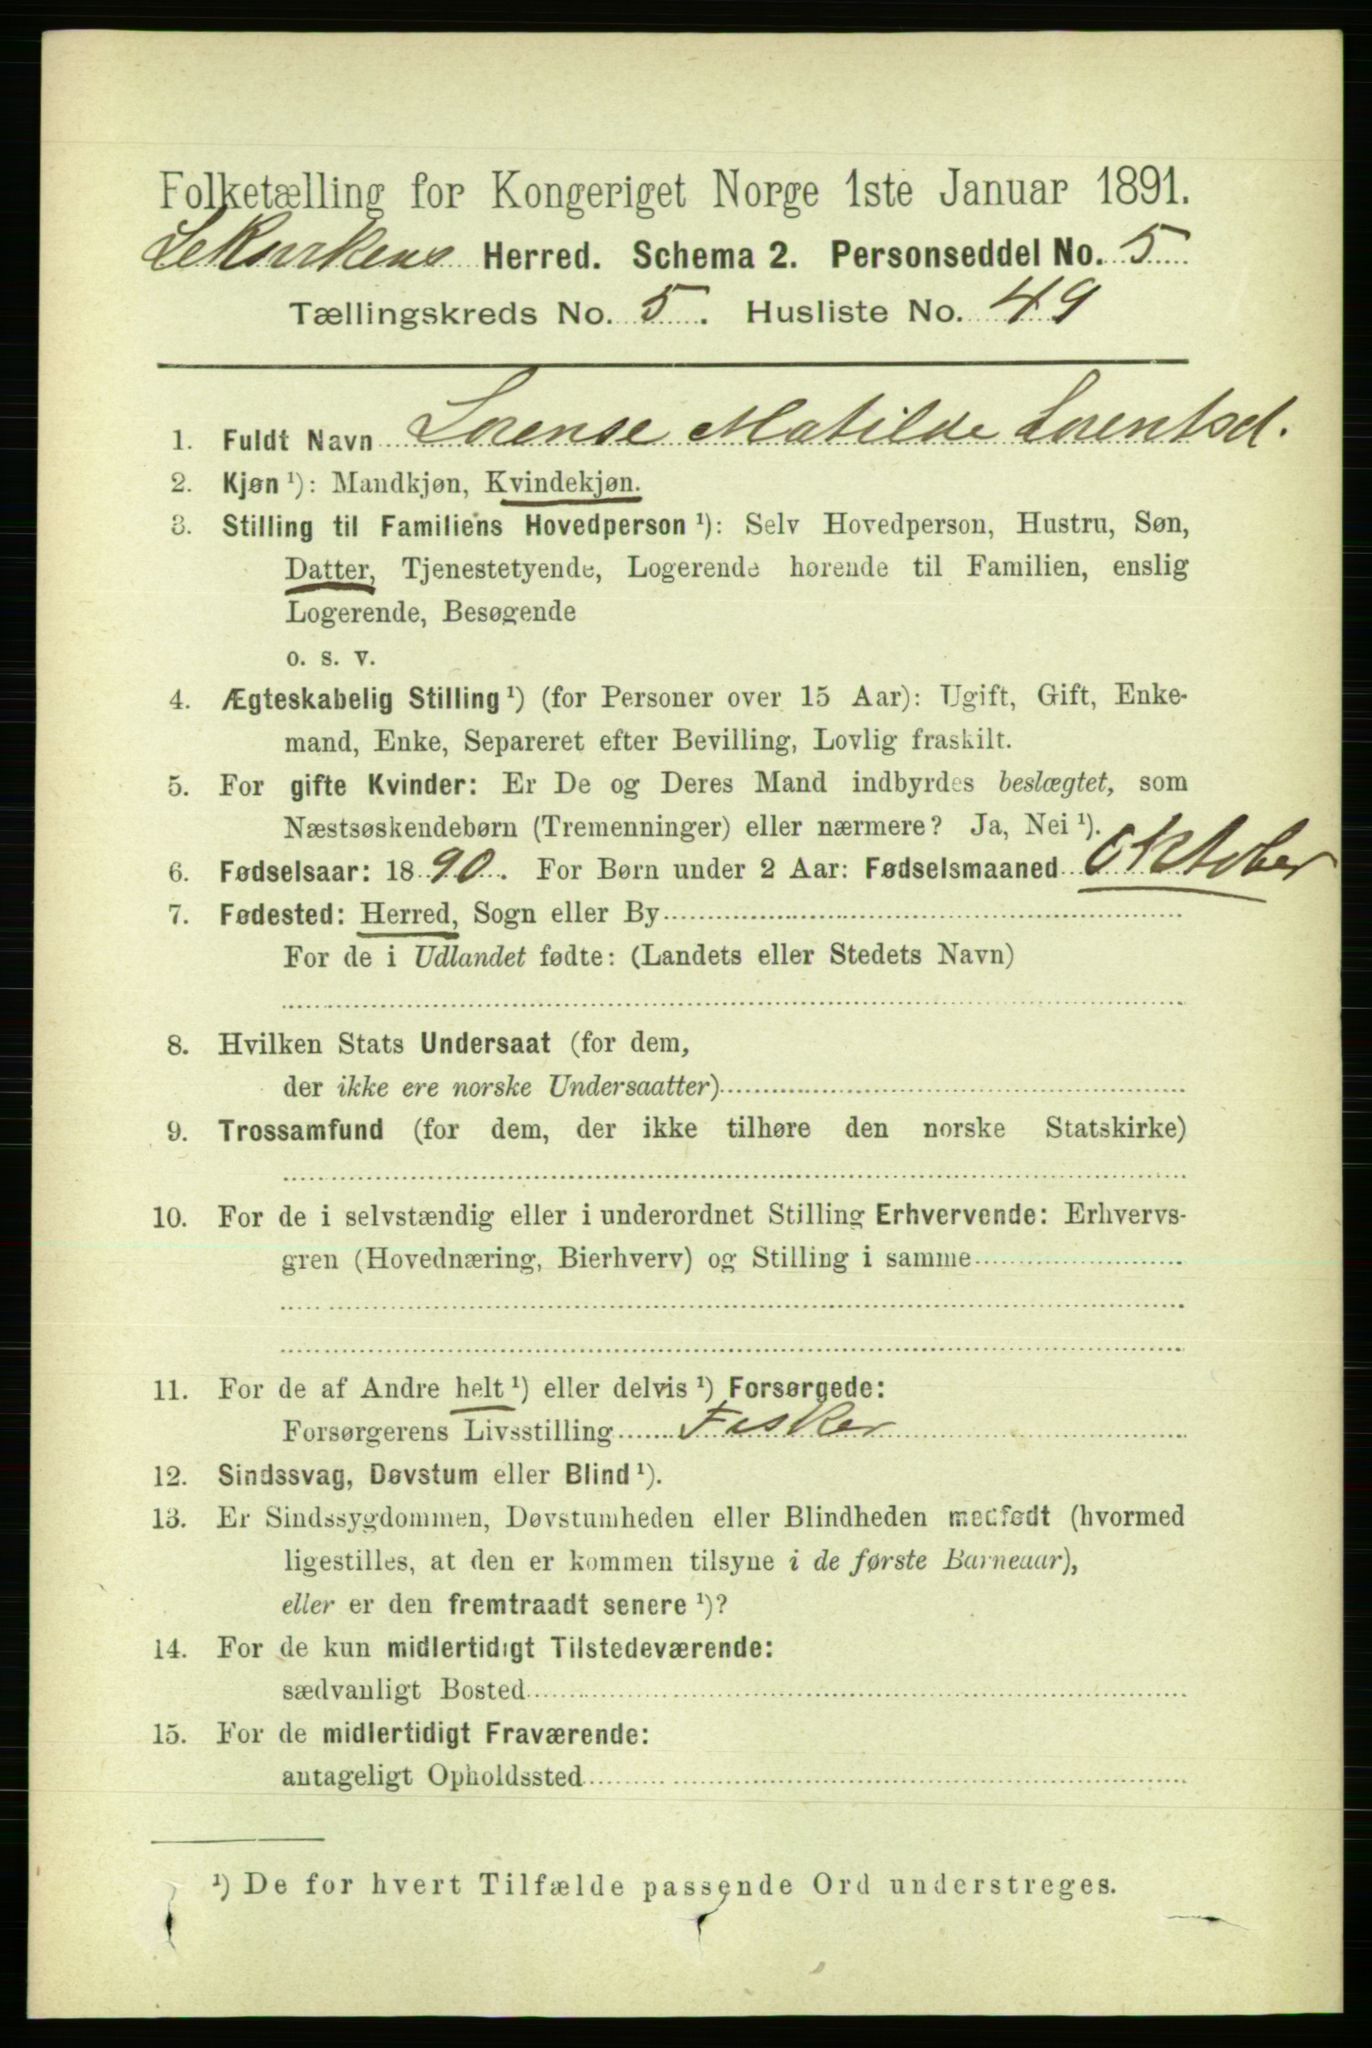 Folketælling for Kongeriget Norge 1ste Januar 1891.
Herred. Schema 2. Personseddel No. 5
Tællingskreds No. 5. Husliste No. 49
1. Fuldt Navn Lorense Matilde Lorentsd.
2. Kjøn ¹): Mandkjøn, Kvindekjøn.
3. Stilling til Familiens Hovedperson ¹): Selv Hovedperson, Hustru, Søn,
Datter, Tjenestetyende, Logerende hørende til Familien, enslig
Logerende, Besøgende
o. s. v.
4. Ægteskabelig Stilling ¹) (for Personer over 15 Aar): Ugift, Gift, Enke-
mand, Enke, Separeret efter Bevilling, Lovlig fraskilt.
5. For gifte Kvinder: Er De og Deres Mand indbyrdes beslægtet, som
Næstsøskendebørn (Tremenninger) eller nærmere? Ja, Nei ¹).
6. Fødselsaar: 1890. For Børn under 2 Aar: Fødselsmaaned Oktober
7. Fødested: Herred, Sogn eller By
For de i Udlandet fødte: (Landets eller Stedets Navn)
8. Hvilken Stats Undersaat (for dem,
der ikke ere norske Undersaatter)
9. Trossamfund (for dem, der ikke tilhøre den norske Statskirke)
10. For de i selvstændig eller i underordnet Stilling Erhvervende: Erhvervs-
gren (Hovednæring, Bierhverv) og Stilling i samme
11. For de af Andre helt ¹) eller delvis ¹) Forsørgede:
Forsørgerens Livsstilling Fisker
12. Sindssvag, Døvstum eller Blind ¹).
13. Er Sindssygdommen, Døvstumheden eller Blindheden medfødt (hvormed
ligestilles, at den er kommen tilsyne i de første Barneaar),
eller er den fremtraadt senere ¹)?
14. For de kun midlertidigt Tilstedeværende:
sædvanligt Bosted
15. For de midlertidigt Fraværende:
antageligt Opholdssted
¹) De for hvert Tilfælde passende Ord understreges.